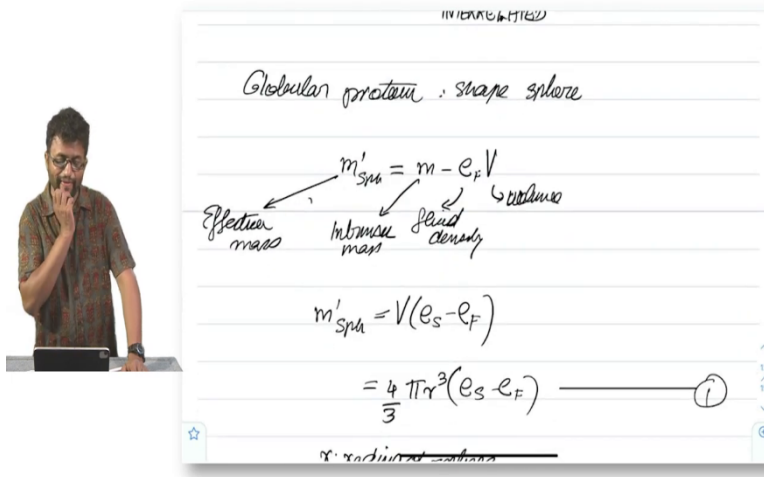 INTERRELATED
Globular protein : shape sphere
m'sph = m - ρF V
Effective mass
Intrinsic mass
fluid density
volume
m'sph = V(ρS - ρF)
= 4/3 πr³(ρS - ρF) ——— ①
r: radius